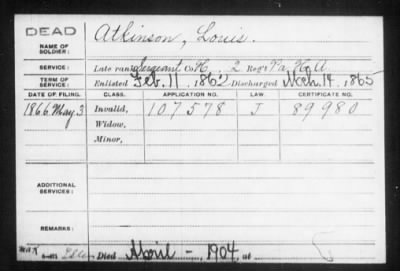 DEAD
NAME OF SOLDIER: Atkinson, Louis.
SERVICE: Late rank Sergeant Co. K, 2 Reg't Pa. H. A.
TERM OF SERVICE: Enlisted Feb. 11, 1862 Discharged Mch. 14, 1865
DATE OF FILING. CLASS. APPLICATION NO. LAW. CERTIFICATE NO.
1866 May 3 Invalid, 107578 J 89980
Widow,
Minor,
ADDITIONAL SERVICES:
REMARKS:
Died April - 1904, at